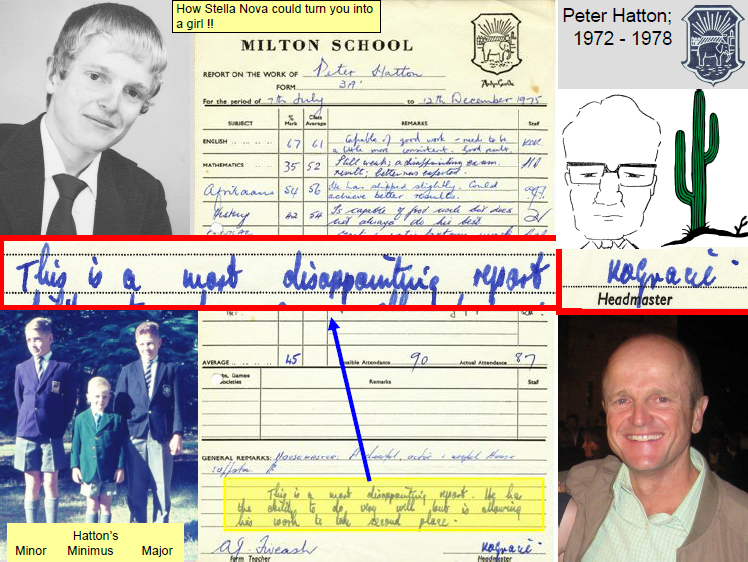 How Stella Nova could turn you into
a girl !!
MILTON SCHOOL
REPORT ON THE WORK OF Peter Hatton
FORM 3A'
For the period of 7th July to 12th December 1975
SUBJECT % Mark Class Average REMARKS Staff
ENGLISH 67 61 Capable of good work - needs to be
a little more consistent. Good result.
MATHEMATICS 35 52 Still weak; a disappointing exam.
result; better was expected.
Afrikaans 54 56 He has slipped slightly. Could
achieve better results.
History 42 54 Is capable of good work but does
not always do his best.
Peter Hatton;
1972 - 1978
This is a most disappointing report
Headmaster
AVERAGE 45 Possible Attendance 90 Actual Attendance 87
Games
Societies Remarks Staff
GENERAL REMARKS: HOUSEMASTER: A cheerful, active & useful House
supporter.
This is a most disappointing report. He has
the ability to do very well but is allowing
his work to take second place.
Form Teacher
Headmaster
Hatton's
Minor Minimus Major